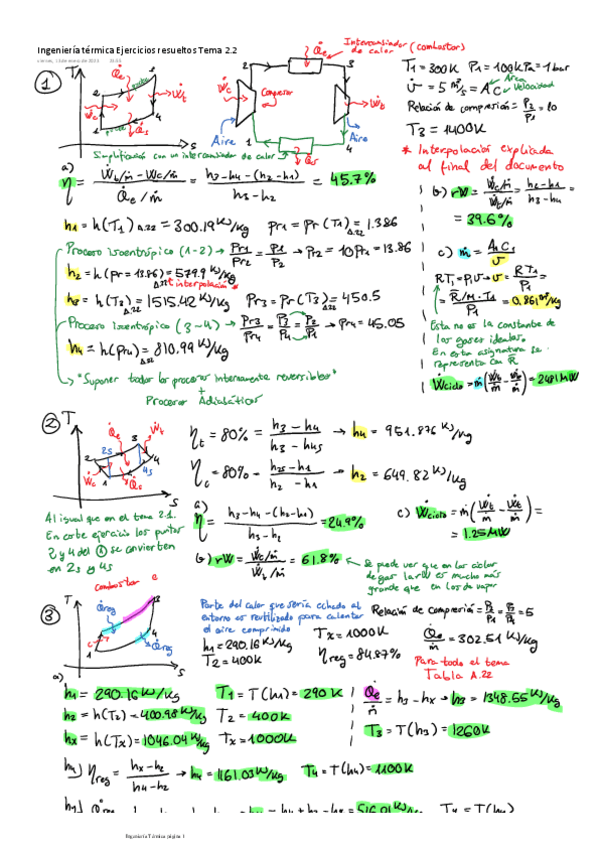 Ingeniería térmica Ejercicios resueltos Tema 2.2
Intercambiador
de calor (combustor)
T1 = 300K P1 = 100kPa = 1 bar
Área
Velocidad
Relación de compresión = P2/P1 = 10
T3 = 1400K
* Interpolación explicada
al final del documento
1
Compresor
Aire
Aire
Simplificación con un intercambiador de calor
a)
η = (Ẇt/ṁ - Ẇc/ṁ) / (Q̇e/ṁ) = (h3-h4-(h2-h1)) / (h3-h2) = 45.7%
b) rW = (Ẇc/ṁ)/(Ẇt/ṁ) = (h2-h1)/(h3-h4) =
= 39.6%
h1 = h(T1) A.22 = 300.19 kJ/kg Pr1 = Pr(T1) = 1.386
Proceso isoentrópico (1-2) → Pr1/Pr2 = P1/P2 → Pr2 = 10Pr1 = 13.86
h2 = h(Pr = 13.86) = 579.9 kJ/kg
A.22 interpolación *
h3 = h(T3) A.22 = 1515.42 kJ/kg Pr3 = Pr(T3) = 450.5
Proceso isoentrópico (3-4) → Pr3/Pr4 = P3/P4 = P2/P1 → Pr4 = 45.05
h4 = h(Pr4) A.22 = 810.99 kJ/kg
"Suponer todos los procesos internamente reversibles"
+
Procesos Adiabáticos
c) ṁ = A1C1/v
RT1 = P1v → v = RT1/P1 =
= (R̄/M·T1)/P1 = 0.861 m³/kg
Esta no es la constante de
los gases ideales.
En esta asignatura se
representa con R̄
Ẇciclo = ṁ(Ẇt/ṁ - Ẇc/ṁ) = 2481 MW
2
ηt = 80% = (h3-h4)/(h3-h4s) → h4 = 951.876 kJ/kg
ηc = 80% = (h2s-h1)/(h2-h1) → h2 = 649.82 kJ/kg
Al igual que en el tema 2.1.
En este ejercicio los puntos
2 y 4 del ① se convierten
en 2s y 4s
a)
η = (h3-h4-(h2-h1))/(h3-h2) = 24.9%
c) Ẇciclo = ṁ(Ẇt/ṁ - Ẇc/ṁ) =
= 1.25 MW
b) rW = (Ẇc/ṁ)/(Ẇt/ṁ) = 61.8%
Se puede ver que en los ciclos
de gas la rW es mucho más
grande que en los de vapor
3
combustor
Parte del calor que sería echado al
entorno es reutilizado para calentar
el aire comprimido
h1 = 290.16 kJ/kg
T2 = 400K
Tx = 1000K
ηreg = 84.87%
Q̇e/ṁ = 302.51 kJ/kg
Para todo el tema
Tabla A.22
a)
h1 = 290.16 kJ/kg T1 = T(h1) = 290 K
h2 = h(T2) = 400.98 kJ/kg T2 = 400K
hx = h(Tx) = 1046.04 kJ/kg Tx = 1000K
Q̇e/ṁ = h3 - hx → h3 = 1348.55 kJ/kg
T3 = T(h3) = 1260K
h4) ηreg = (hx-h2)/(h4-h2) → h4 = 1161.03 kJ/kg T4 = T(h4) = 1100K
Ingeniería Térmica página 1